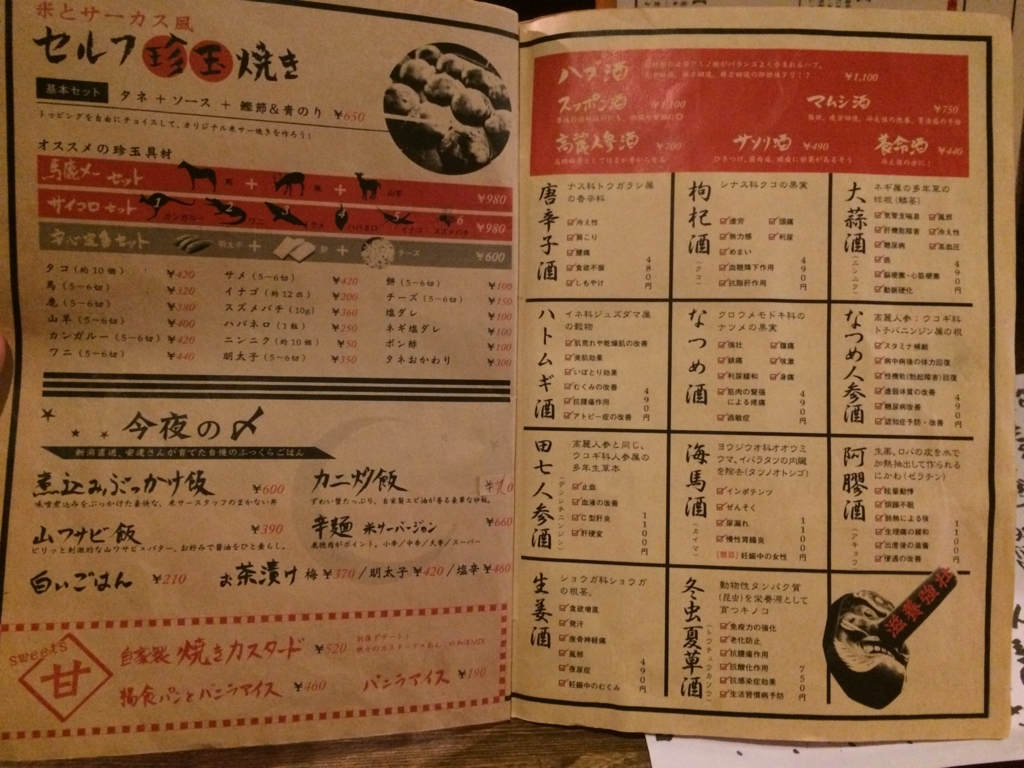 米とサーカス風
セルフ珍玉焼き
基本セット タネ + ソース + 鰹節&青のり ¥650
トッピングを自由にチョイスして、オリジナル米サー焼きを作ろう!
オススメの珍玉具材
馬鹿メーセット 馬 + 鹿 + 山羊 ¥980
サイコロセット 1 2 3 4 5 6 ¥980
カンガルー ワニ サメ ハバネロ イナゴ スズメバチ
安心定番セット 明太子 + 餅 + チーズ ¥600
タコ(約10個) ¥420 サメ(5−6切) ¥420 餅(5−6切) ¥100
馬(5−6切) ¥320 イナゴ(約12匹) ¥200 チーズ(5−6切) ¥150
鹿(5−6切) ¥380 スズメバチ(10g) ¥360 塩ダレ ¥100
山羊(5−6切) ¥400 ハバネロ(1粒) ¥250 ネギ塩ダレ ¥100
カンガルー(5−6切) ¥420 ニンニク(約10個) ¥50 ポン酢 ¥100
ワニ(5−6切) ¥440 明太子(5−6切) ¥350 タネおかわり ¥300
今夜の〆
新潟直送、安達さんが育てた自慢のふっくらごはん
煮込みぶっかけ飯 ¥600
味噌煮込みをぶっかけた豪快な、米サースタッフのまかない丼
カニ炒飯
ずわい蟹たっぷり、自家製エビ油が香る豪華な炒飯。
山ワサビ飯 ¥390
ピリッと刺激的な山ワサビ×バター。お好みで醤油をひと垂らし。
辛麺 米サーバージョン ¥660
鹿挽肉がポイント。小辛/中辛/大辛/スーパー
白いごはん ¥210
お茶漬け 梅¥370/明太子¥420/塩辛¥460
sweets
甘
自家製 焼きカスタード ¥520
揚食パンとバニラアイス ¥460
バニラアイス ¥190
ハブ酒 ¥1,100
スッポン酒 ¥1,100
マムシ酒 ¥750
高麗人参酒 ¥700
サソリ酒 ¥490
養命酒 ¥440
唐辛子酒
ナス科トウガラシ属の香辛料
冷え性
肩こり
腰痛
食欲不振
しもやけ
480円
枸杞酒(クコ)
シナス科クコの果実
疲労 頭痛
無力感 利尿
めまい
血糖降下作用
抗脂肝作用
490円
大蒜酒(ニンニク)
ネギ属の多年草の球根(鱗茎)
気管支喘息 風邪
肝機能障害 冷え性
糖尿病 高血圧
癌
脳梗塞・心筋梗塞
動脈硬化
490円
ハトムギ酒
イネ科ジュズダマ属の穀物
肌荒れや乾燥肌の改善
美肌効果
いぼとり効果
むくみの改善
抗腫瘍作用
アトピー症の改善
490円
なつめ酒
クロウメモドキ科のナツメの果実
強壮 腹痛
鎮痛 咳嗽
利尿緩和 身痛
筋肉の緊張による疼痛
過敏症
490円
なつめ人参酒
高麗人参:ウコギ科トチバニンジン属の根
スタミナ補給
病中病後の体力回復
性機能(勃起障害)回復
虚弱体質の改善
糖尿病改善
認知症予防・改善
490円
田七人参酒(デンシチニンジン)
高麗人参と同じ、ウコギ科人参属の多年生草本
止血
血液の改善
C型肝炎
肝硬変
1100円
海馬酒(カイマ)
ヨウジウオ科オオウミウマ、イバラタツの内臓を除去(タツノオトシゴ)
インポテンツ
ぜんそく
尿漏れ
慢性胃腸炎
[禁忌]妊娠中の女性
1100円
阿膠酒(アキョウ)
生薬、ロバの皮を水で加熱抽出して作られるにかわ(ゼラチン)
眩暈動悸
煩躁不眠
熱熱による咳
生理痛の緩和
出産後の滋養
便通の改善
1100円
生姜酒
ショウガ科ショウガの根茎。
食欲増進
発汗
座骨神経痛
風邪
夜尿症
妊娠中のむくみ
490円
冬虫夏草酒(トウチュウカソウ)
動物性タンパク質(昆虫)を栄養源として育つキノコ
免疫力の強化
老化防止
抗腫瘍作用
抗酸化作用
抗感染症効果
生活習慣病予防
750円
滋養強壮